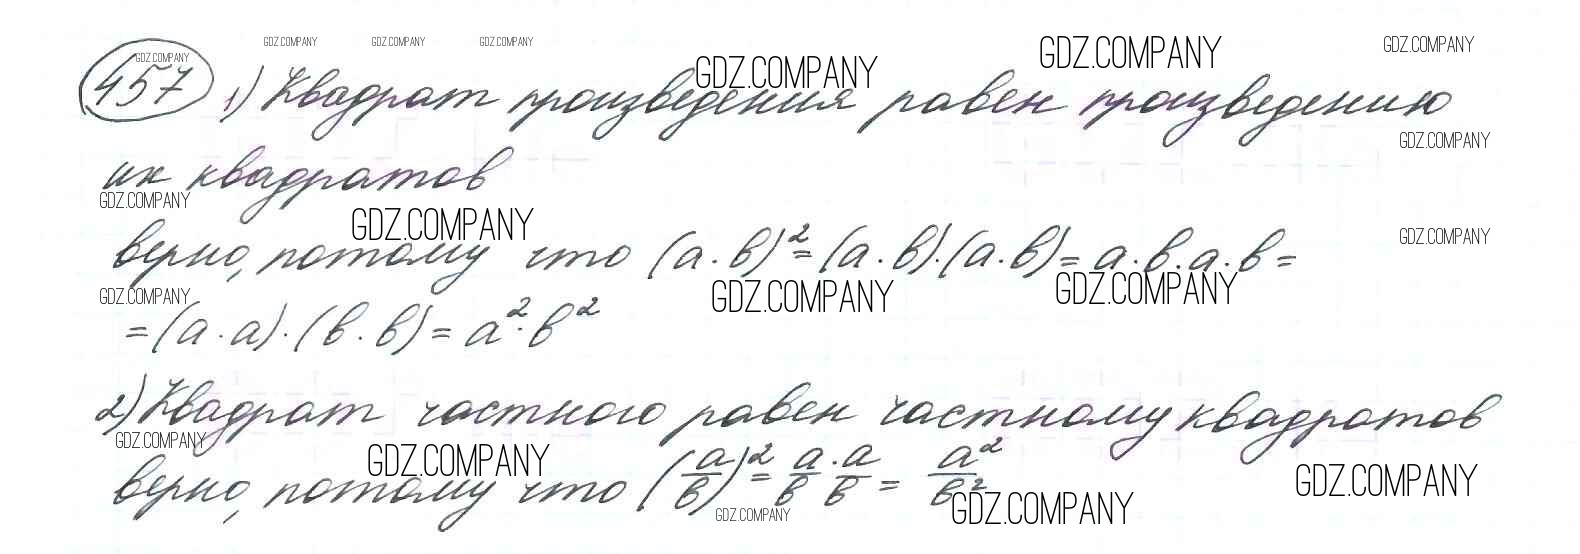 GDZ.COMPANY GDZ.COMPANY GDZ.COMPANY GDZ.COMPANY GDZ.COMPANY
GDZ.COMPANY GDZ.COMPANY
457 1) Квадрат произведения равен произведению
GDZ.COMPANY
их квадратов
GDZ.COMPANY
GDZ.COMPANY GDZ.COMPANY
верно, потому что (а · в)² = (а · в) · (а · в) = а · в · а · в =
GDZ.COMPANY GDZ.COMPANY GDZ.COMPANY
= (а · а) · (в · в) = а² · в²
2) Квадрат частного равен частному квадратов
GDZ.COMPANY GDZ.COMPANY GDZ.COMPANY
верно, потому что (а/в)² = а/в · а/в = а²/в²
GDZ.COMPANY GDZ.COMPANY